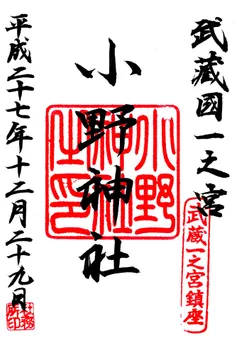 武蔵國一之宮
武蔵一之宮鎮座
小野神社
小野神社之印
平成二十七年十二月二十九日
社務所印